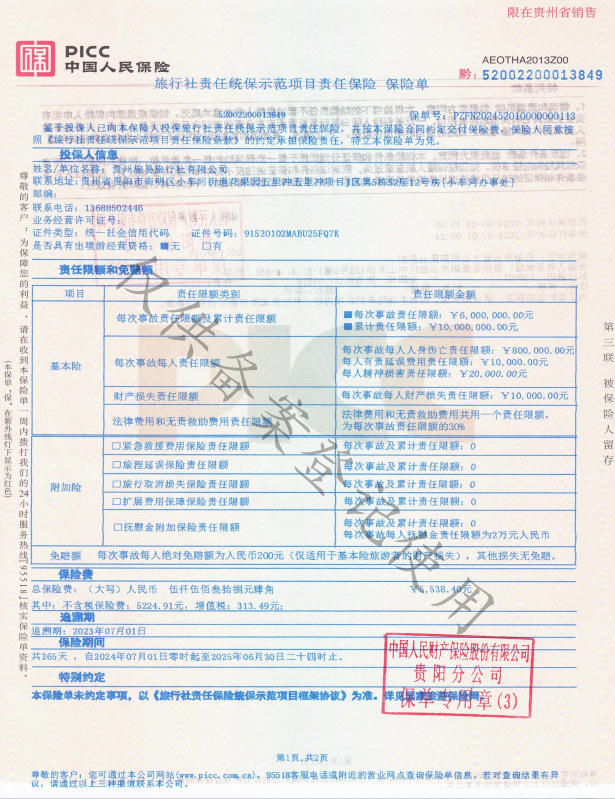 限在贵州省销售
PICC
中国人民保险
AEOTHA2013Z00
黔：52002200013849
旅行社责任统保示范项目责任保险 保险单
52002200013849
保单号：PZFN202452010000000113
鉴于投保人已向本保险人投保旅行社责任统保示范项目责任保险，并按本保险合同约定交付保险费，保险人同意按
照《旅行社责任统保示范项目责任保险条款》的约定承担保险责任，特立本保险单为凭。
投保人信息
姓名/单位名称：贵州旅易旅行社有限公司
联系地址:贵州省贵阳市南明区小车河街道花果园五里冲五里冲项目J区第5栋S2层12号房[小车河办事处]
邮编：
联系电话：13688502446
业务经营许可证号：
证件类型：统一社会信用代码 证件号码：91520102MABU25FQ7K
是否具有出境游经营资格：■无 □有
责任限额和免赔额
项目 责任限额类别 责任限额金额
基本险
每次事故责任限额及累计责任限额
■每次事故责任限额：¥6,000,000.00元
■累计责任限额：¥10,000,000.00元
每次事故每人责任限额
每次事故每人人身伤亡责任限额：¥800,000.00元
每人有责延误费用责任限额：¥10,000.00元
每人精神损害责任限额：¥20,000.00元
财产损失责任限额 每次事故每人财产损失责任限额：¥10,000.00元
法律费用和无责救助费用责任限额
法律费用和无责救助费用共用一个责任限额，
为每次事故责任限额的30%
附加险
□紧急救援费用保险责任限额 每次事故及累计责任限额：0
□旅程延误保险责任限额 每次事故及累计责任限额：0
□旅行取消损失保险责任限额 每次事故及累计责任限额：0
□扩展费用保障保险责任限额 每次事故及累计责任限额：0
□抚慰金附加保险责任限额
每次事故及累计责任限额：0
每次事故每人抚慰金责任限额为2万元人民币
免赔额 每次事故每人绝对免赔额为人民币200元（仅适用于基本险旅游者的财产损失），其他损失无免赔。
保险费
总保险费：（大写）人民币 伍仟伍佰叁拾捌元肆角 ¥5,538.40元
其中：不含税保险费：5224.91元，增值税：313.49元；
追溯期
追溯期：2023年07月01日
保险期间
共365天 ，自2024年07月01日零时起至2025年06月30日二十四时止。
特别约定
本保险单未约定事项，以《旅行社责任保险统保示范项目框架协议》为准。
中国人民财产保险股份有限公司
贵阳分公司
保单专用章(3)
仅供备案登记使用
第1页,共2页
尊敬的客户：您可通过本公司网站(www.picc.com.cn)、95518客服电话或附近的营业网点查询保险单信息。若对查询结果有异
议，请通过以上三种渠道联系本公司。
尊敬的客户：为保障您的利益，请在收到本保险单一周内拨打我们的24小时服务热线『95518』核实保险单资料。
(本保单"保"。在紫外线灯下显示为红色)
第三联 被保险人留存